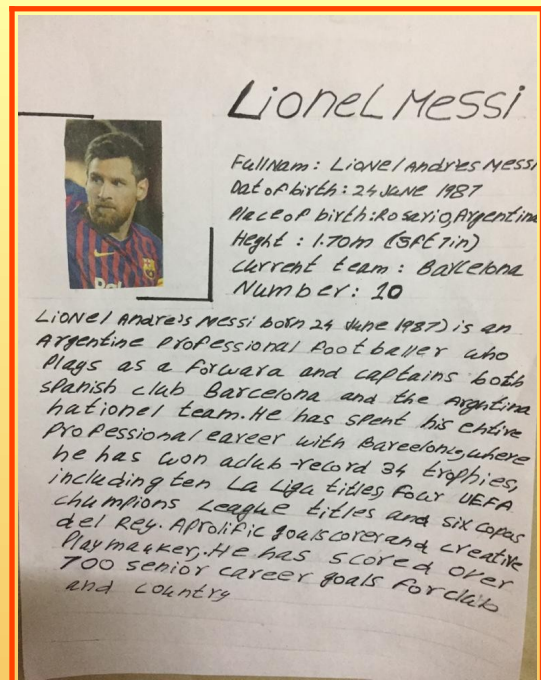 Lionel Messi
Full Nam: Lionel Andrés Messi
Dat of birth: 24 June 1987
Place of birth: Rosario, Argentina
Heght: 1.70m (5ft 7in)
Current team: Barcelona
Number: 10
Lionel Andrés Messi born 24 June 1987) is an
Argentine professional footballer who
Plags as a forwara and captains both
spanish club Barcelona and the Argntina
nationel team. He has spent his entire
professional eareer with Bareelona, where
he has won aclub-record 34 trophies,
including ten La Liga titles, four UEFA
champions League titles and six copas
del Rey. Aprolific goalscorer and creative
Playmauker, He has scored over
700 senior career goals for club
and country